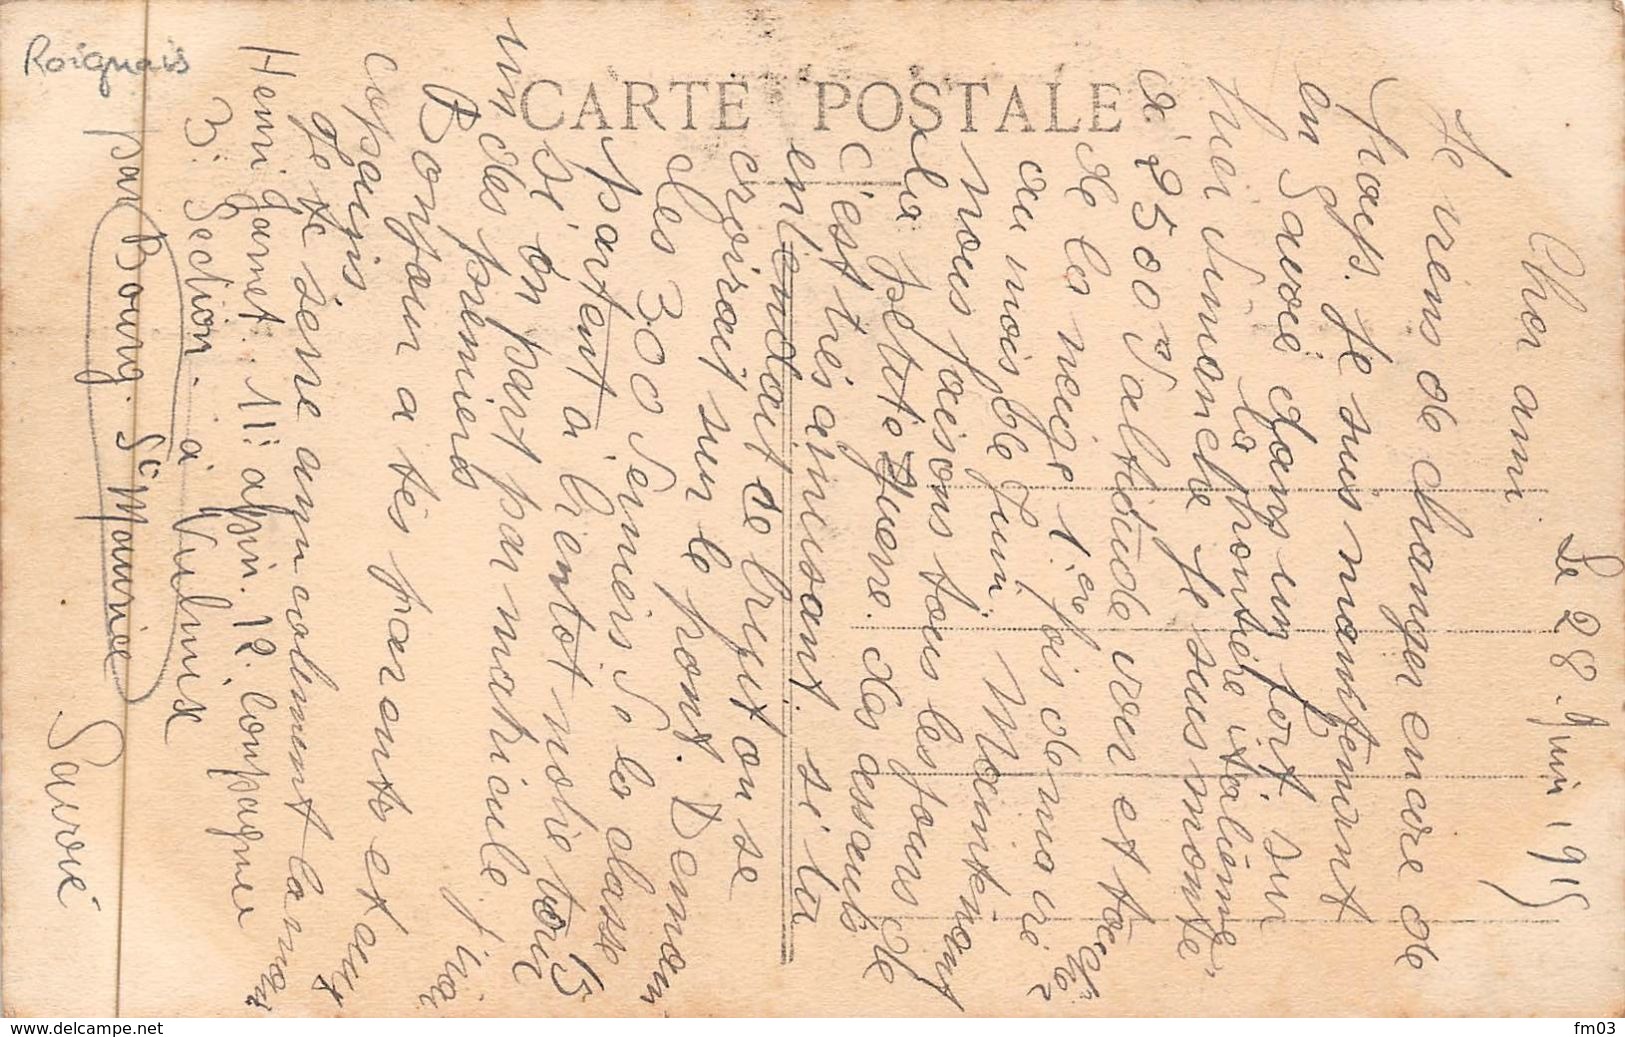 Roignais
CARTE POSTALE
Le 28 Juin 1915
Cher ami
Je viens de changer encore de
pays. Je suis maintenant
en Savoie dans un fort sur
la frontière italienne
hier dimanche je suis monté
à 2500m d'altitude voir et toucher
de la neige 1ere fois de ma vie
au mois de Juin. Maintenant
nous faisons tous les jours de
la petite guerre. des assauts
C'est très amusant. si tu
entendait ce bruit on se
croirait sur le pont. Demain
les 300 derniers de la classe 15
partent à bientot notre tour
si on part par matricule j'irai
un des premiers
Bonjour a tes parants et aux
copains
Je te serre amicalement la main
Henri Garnet 11e alpin. 12. Compagnie
3e Section à Vulmix
par Bourg. St Maurice
Savoie
delcampe.net
fm03